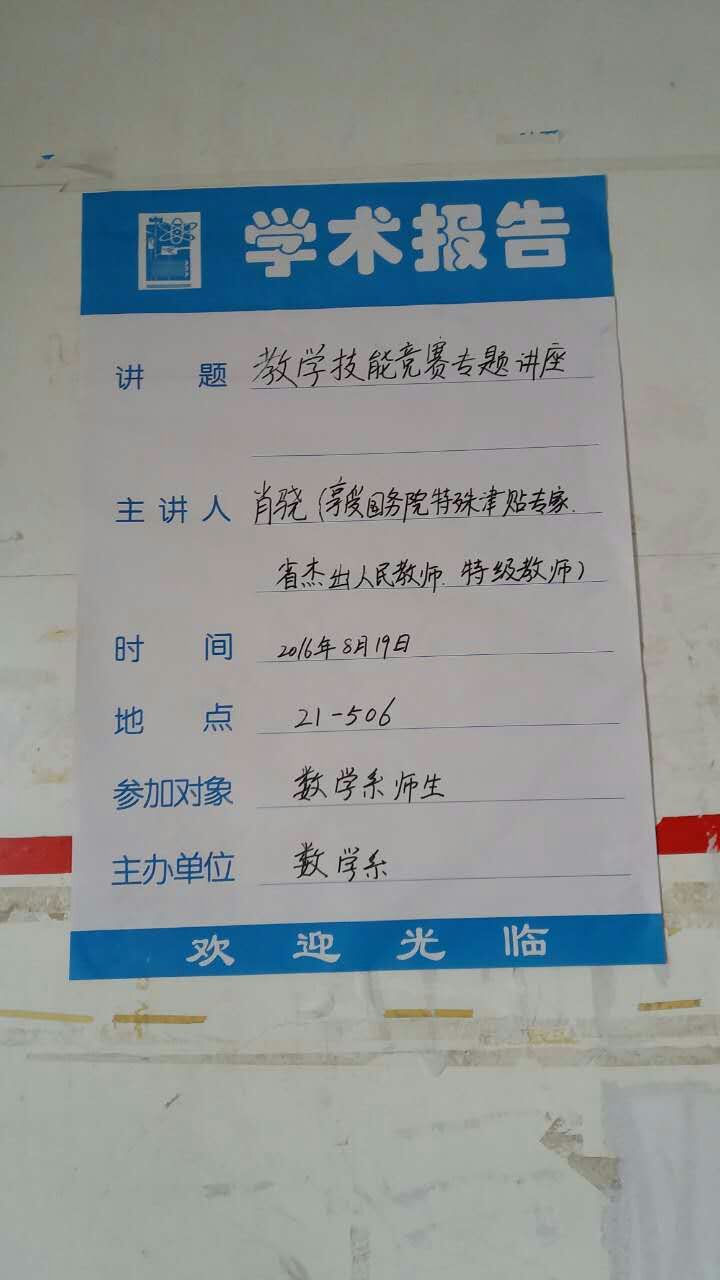 学术报告
讲题 教学技能竞赛专题讲座
主讲人 肖骁(享受国务院特殊津贴专家.
省杰出人民教师.特级教师)
时间 2016年8月19日
地点 21-506
参加对象 数学系师生
主办单位 数学系
欢迎光临